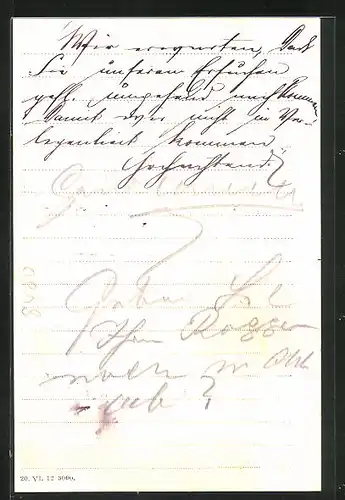 Wir erwarten, daß
Sie unserem Ersuchen
gefl. umgehend nachkommen
damit wir nicht in Ver-
legenheit kommen
Hochachtend
Haben Sie
Ihren Roggen
noch in
ab?
20. VI. 12 3000.